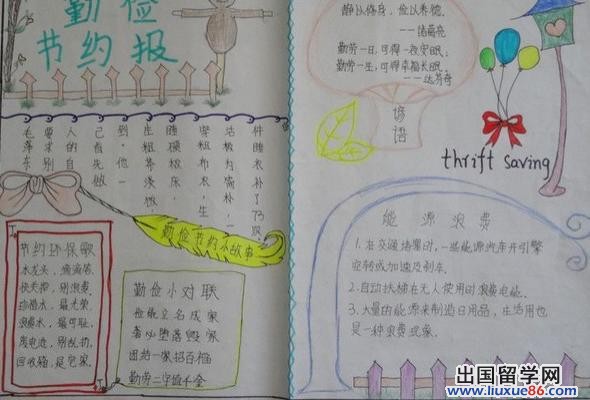 勤俭
节约报
毛泽东
要求别
人的自
己首先做
到,他一
生粗茶淡饭,
睡硬板床,
穿粗布衣,生
活极为简朴,一
件睡衣补了73次
勤俭节约小故事
节约环保歌
水龙头，滴滴答，
快关掉，别浪费，
珍惜水，最光荣，
浪费水，最可耻，
废电池，别乱扔，
回收箱，是它家。
勤俭小对联
俭能立名成家
奢必堕落毁家
团结一家招百福
勤劳二字值千金
静以修身，俭以养德。
——诸葛亮
勤劳一日，可得一夜安眠；
勤劳一生，可得幸福长眠。
——达芬奇
谚语
thrift saving
能源浪费
1.在交通堵塞时，一些能源汽车开引擎
空转或加速及刹车。
2.自动扶梯在无人使用时浪费电能。
3.大量的能源来制造日用品，生活用也
是一种浪费现象。
出国留学网
www.liuxue86.com